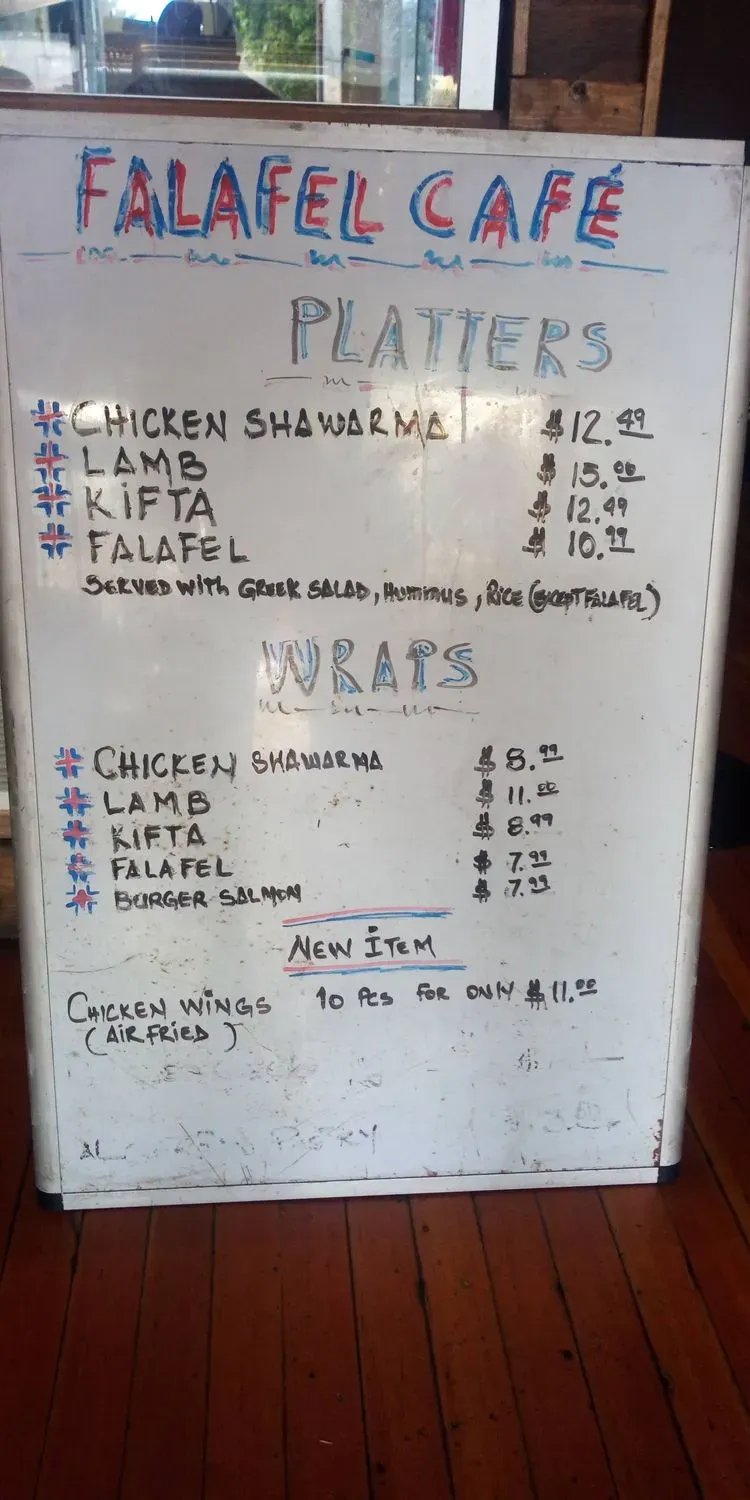 FALAFEL CAFÉ
PLATTERS
CHICKEN SHAWARMA $12.49
LAMB $15.00
KIFTA $12.49
FALAFEL $10.99
SERVED WITH GREEK SALAD, HUMMUS, RICE (EXCEPT FALAFEL)
WRAPS
CHICKEN SHAWARMA $8.99
LAMB $11.00
KIFTA $8.99
FALAFEL $7.99
BURGER SALMON $7.99
NEW ITEM
CHICKEN WINGS 10 PCS FOR ONLY $11.00
(AIR FRIED)